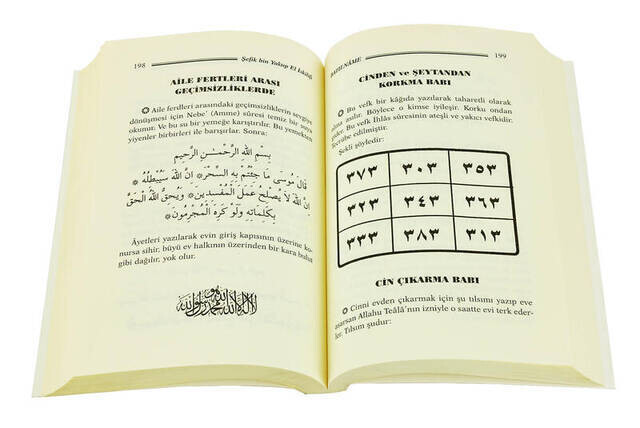 198
Şefik bin Yakup El İskilği
AİLE FERTLERİ ARASI
GEÇİMSİZLİKLERDE
Aile ferdleri arasındaki geçimsizliklerin sevgiye
dönüşmesi için Nebe' (Amme) sûresi temiz bir suya
okunur. Ve bu su bir yemeğe karıştırılır. Bu yemekten
yiyenler birbirleri ile barışırlar. Sonra:
بِسْمِ اللهِ الرَّحْمٰنِ الرَّحِيمِ
قَالَ مُوسَى مَا جِئْتُمْ بِهِ السِّحْرُ اِنَّ اللهَ سَيُبْطِلُهُ
اِنَّ اللهَ لَا يُصْلِحُ عَمَلَ الْمُفْسِدِينَ وَيُحِقُّ اللهُ الْحَقَّ
بِكَلِمَاتِهِ وَلَوْ كَرِهَ الْمُجْرِمُونَ
Âyetleri yazılarak evin giriş kapısının üzerine ko-
nursa sihir, büyü ev halkının üzerinden bir kara bulut
gibi dağılır, yok olur.
لا اله الا الله محمد رسول الله
199
CİNDEN ve ŞEYTANDAN
KORKMA BABI
Bu vefk bir kâğıda yazılarak taharetli olarak
asılır. Böylece o kimse iyileşir. Korku ondan
Bu vefk İhlâs sûresinin ateşli ve yakıcı vefkidir.
Tecrübe edilmiştir.
Şekli şöyledir:
٣٧٣ ٣٠٣ ٣٥٣
٣٢٣ ٣٤٣ ٣٦٣
٣٣٣ ٣٨٣ ٣١٣
CİN ÇIKARMA BABI
Cinni evden çıkarmak için şu tılsım yazıp eve
asarsan Allahu Teâlâ'nın izniyle o saatte evi terk eder-
ler. Tılsım şudur: